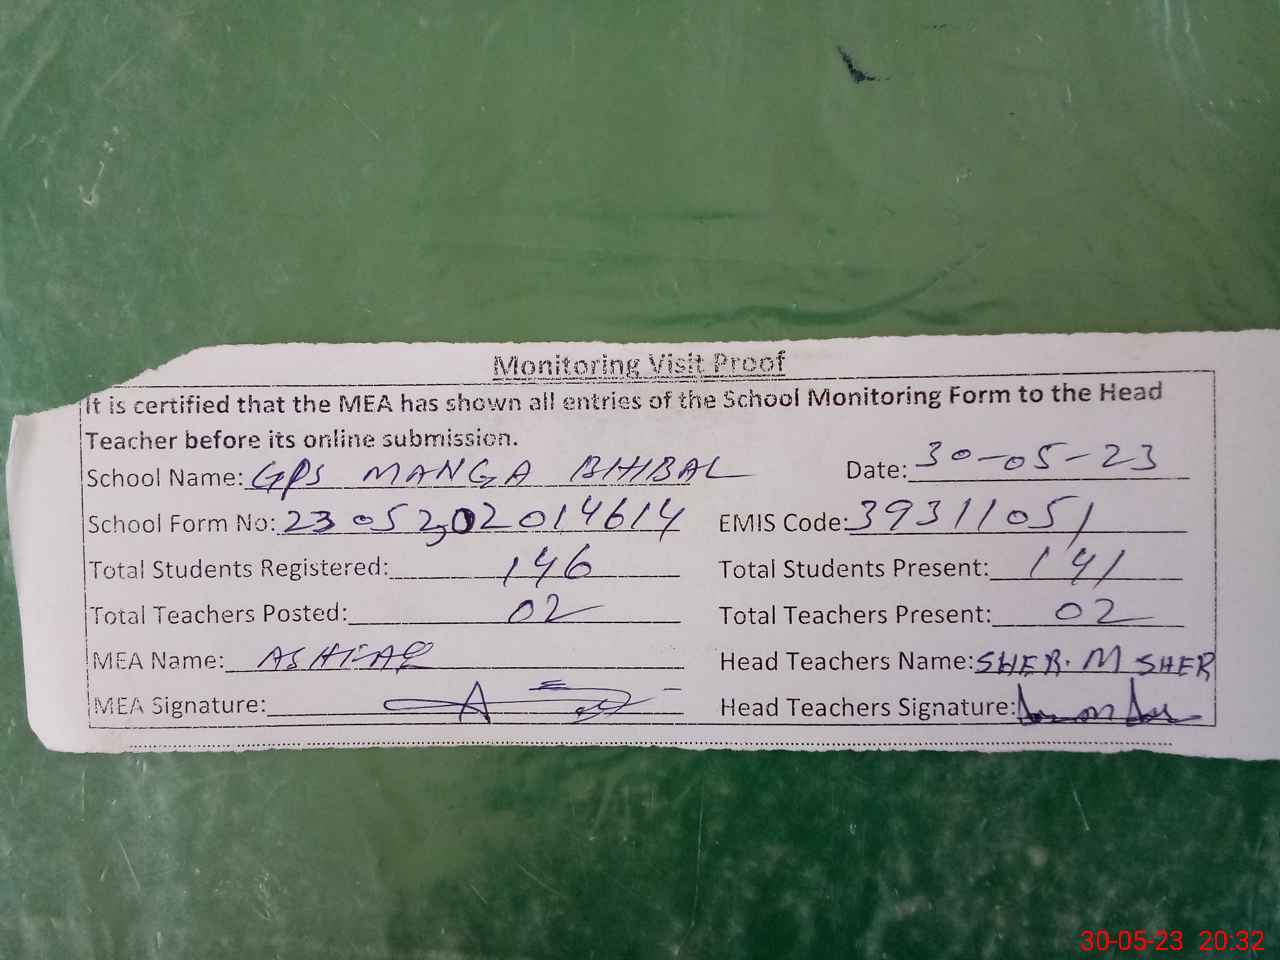 Monitoring Visit Proof
It is certified that the MEA has shown all entries of the School Monitoring Form to the Head
Teacher before its online submission.
School Name: GPS MANGA BHIBAL Date: 30-05-23
School Form No: 23052302014614 EMIS Code: 39311051
Total Students Registered: 146 Total Students Present: 141
Total Teachers Posted: 02 Total Teachers Present: 02
MEA Name: Head Teachers Name: SHER. M SHER
MEA Signature: Head Teachers Signature:
30-05-23 20:32